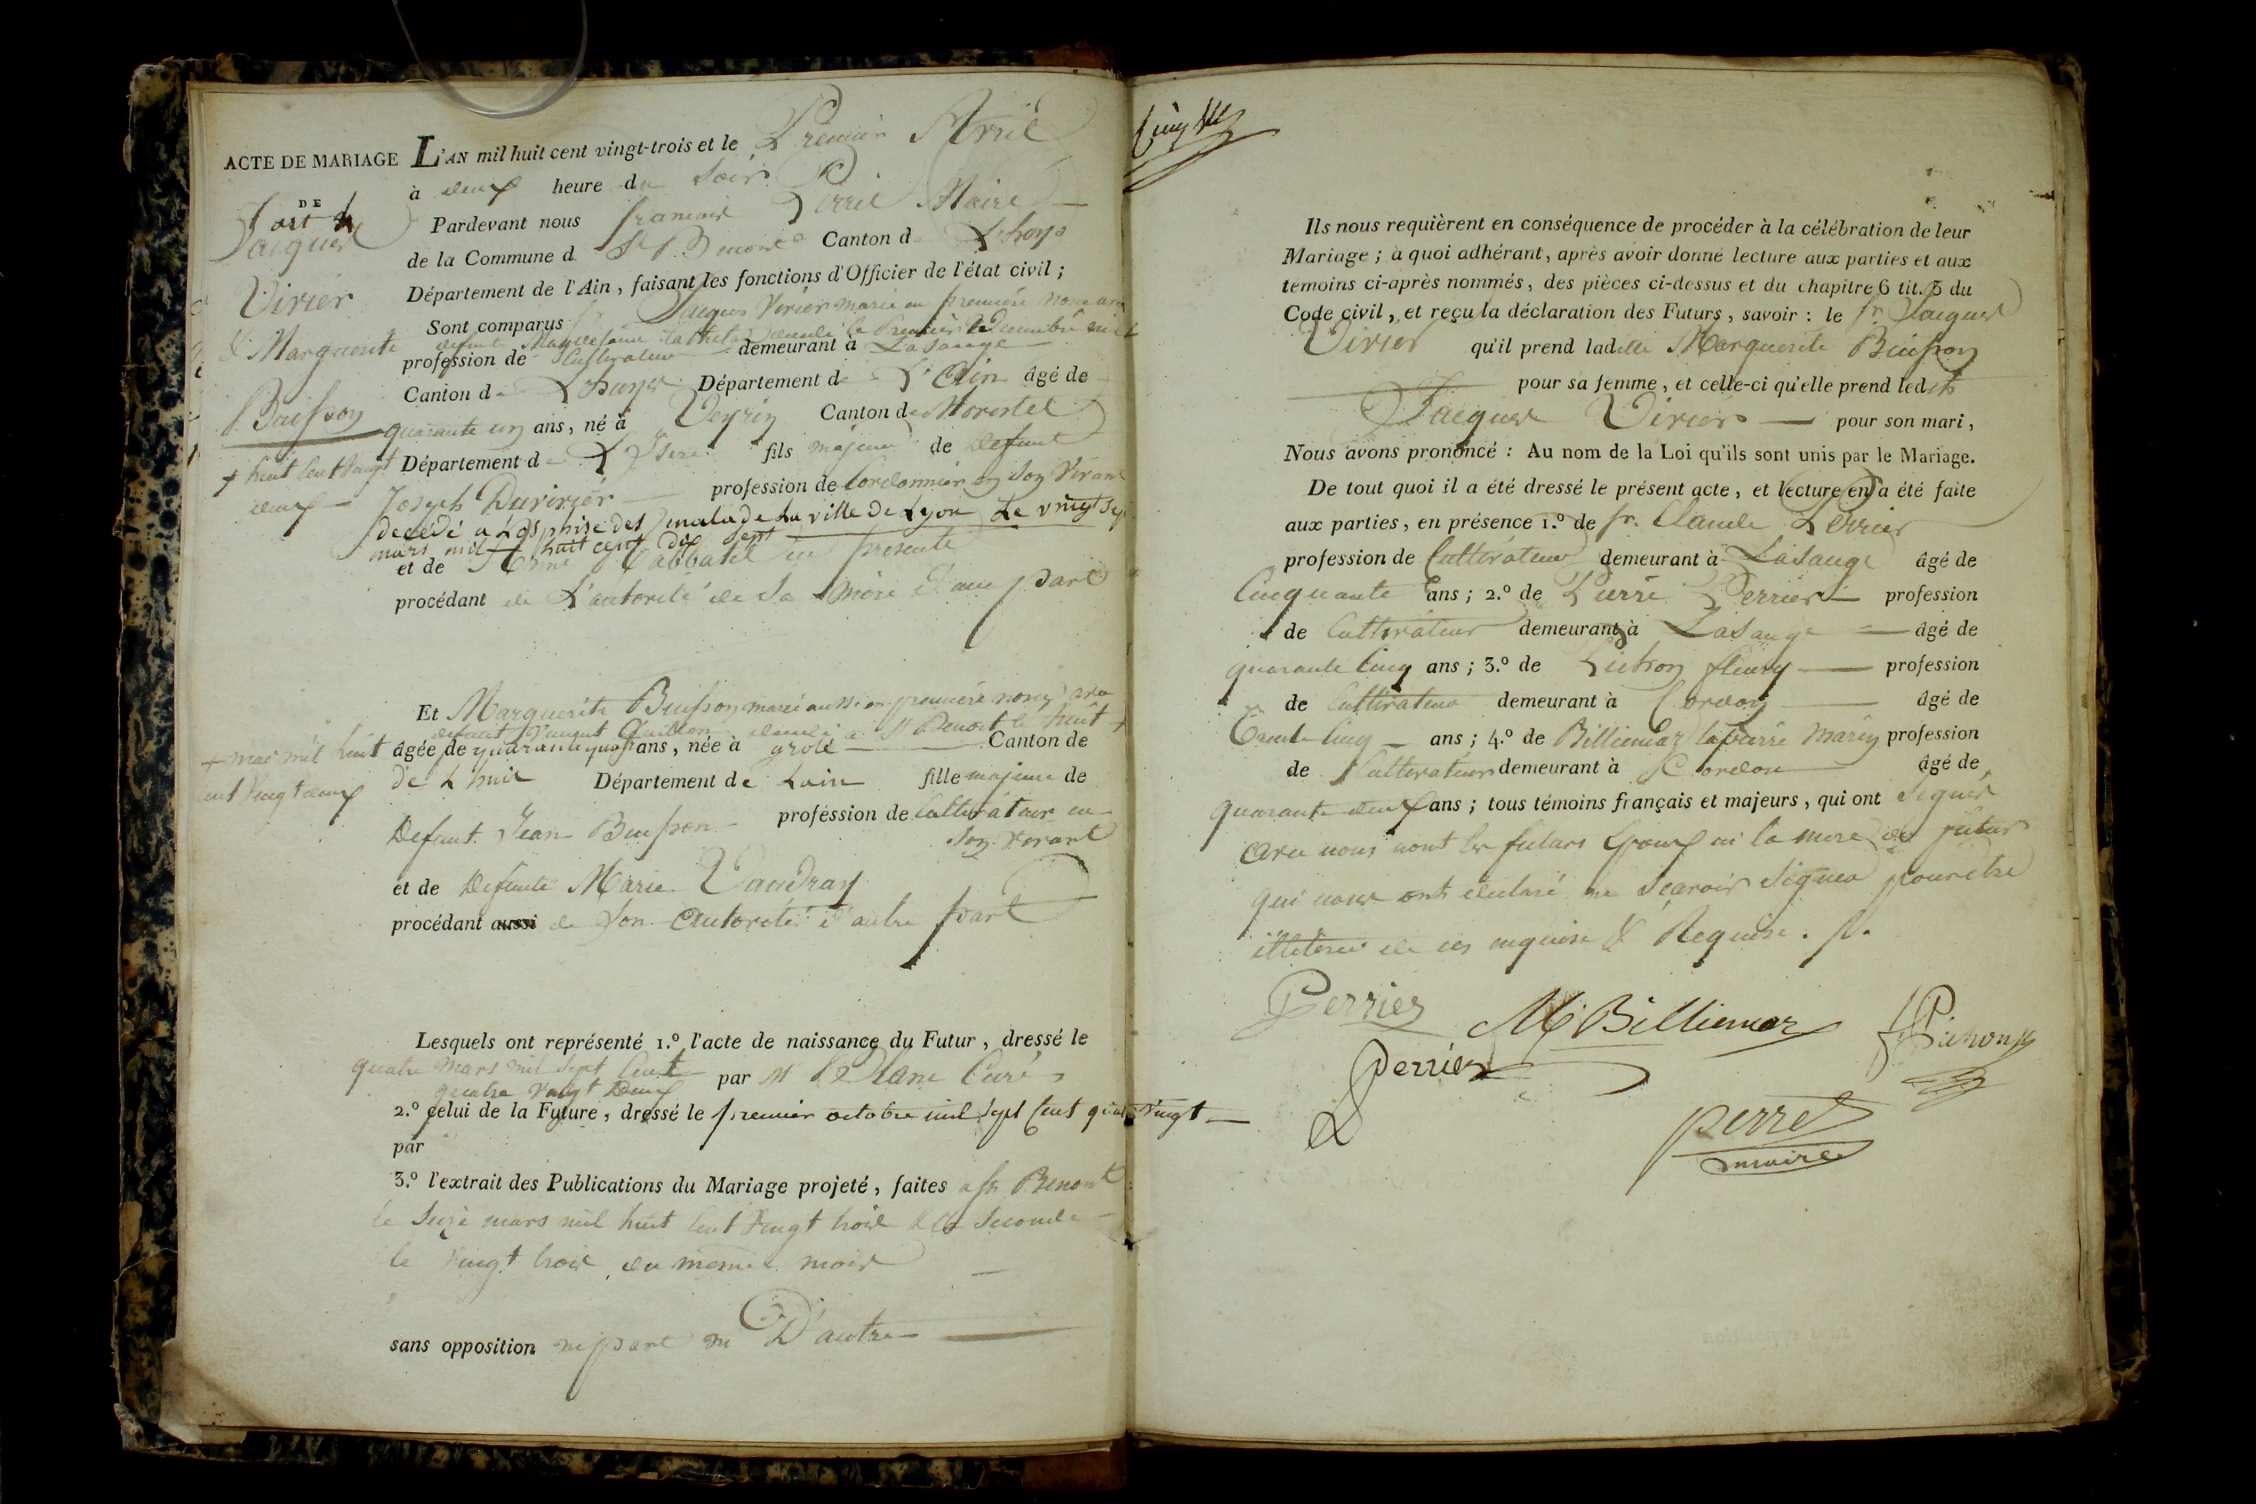 ACTE DE MARIAGE
DE
art 4
Jacques
Virier
& Marguerite
Buisson
+ huit cent vingt
deux
L'AN mil huit cent vingt-trois et le Premier Avril
à deux heure du Soir
Pardevant nous françois Perret Maire
de la Commune d. St Benoit Canton d. Lhuys
Département de l'Ain, faisant les fonctions d'Officier de l'état civil;
Sont comparus fr Jacques Virier marié en première noce avec
defunte Magdelaine décédée le Premier Décembre mil +
profession de Cultivateur demeurant à Lasauge
Canton de Lhuys Département de L'Ain âgé de
quarante un ans, né à Veyrin Canton de Morestel
Département de L'Isère fils majeur de defunt
Joseph Duvirier profession de Cordonnier en son vivant
décédé a des malade La ville de Lyon Le vingt sep
mars mil huit cent dix sept
et de présente
procédant de L'autorité de Sa Mère d'une part
Et Marguerite Buisson marié aussi en première noce avec
defunt Guillon décédé a St Benoit le huit +
+ mai mil huit
cent vingt deux
âgée de quarante quatre ans, née à grole Canton de
de Lhuis Département de Lain fille majeure de
Defunt Jean Buisson profession de Cultivateur en
son vivant
et de Defunte Marie Vaudray
procédant aussi de son autorité d'autre part
Lesquels ont représenté 1.º l'acte de naissance du Futur, dressé le
quatre mars mil sept cent
quatre vingt deux par Mr Curé
2.º celui de la Future, dressé le premier octobre mil sept cent quatre vingt
par
3.º l'extrait des Publications du Mariage projeté, faites a St Benoit
le seize mars mil huit cent vingt trois & la seconde
le vingt trois du meme mois
sans opposition ni part ni D'autre
Ils nous requièrent en conséquence de procéder à la célébration de leur
Mariage; à quoi adhérant, après avoir donné lecture aux parties et aux
témoins ci-après nommés, des pièces ci-dessus et du chapitre 6 tit. 5 du
Code civil, et reçu la déclaration des Futurs, savoir: le fr. Jacques
Virier qu'il prend ladite Marguerite Buisson
pour sa femme, et celle-ci qu'elle prend ledit
Jacques Virier pour son mari,
Nous avons prononcé: Au nom de la Loi qu'ils sont unis par le Mariage.
De tout quoi il a été dressé le présent acte, et lecture en a été faite
aux parties, en présence 1.º de fr. Claude Perrier
profession de Cultivateur demeurant à Lasauge âgé de
Cinquante ans; 2.º de Pierre Perrier profession
de Cultivateur demeurant à Lasauge âgé de
quarante cinq ans; 3.º de fleury profession
de Cultivateur demeurant à Cordon âgé de
Trente cinq ans; 4.º de Billiemaz Marin profession
de Cultivateur demeurant à Cordon âgé de
quarante deux ans; tous témoins français et majeurs, qui ont Signés
avec nous non les futurs Epoux ni la mere du futur
qui nous ont déclaré ne Sçavoir Signer pour être
illiterés de ces enquise & Requise.
Perrier
M Billiemaz
Perrier
Perret
maire